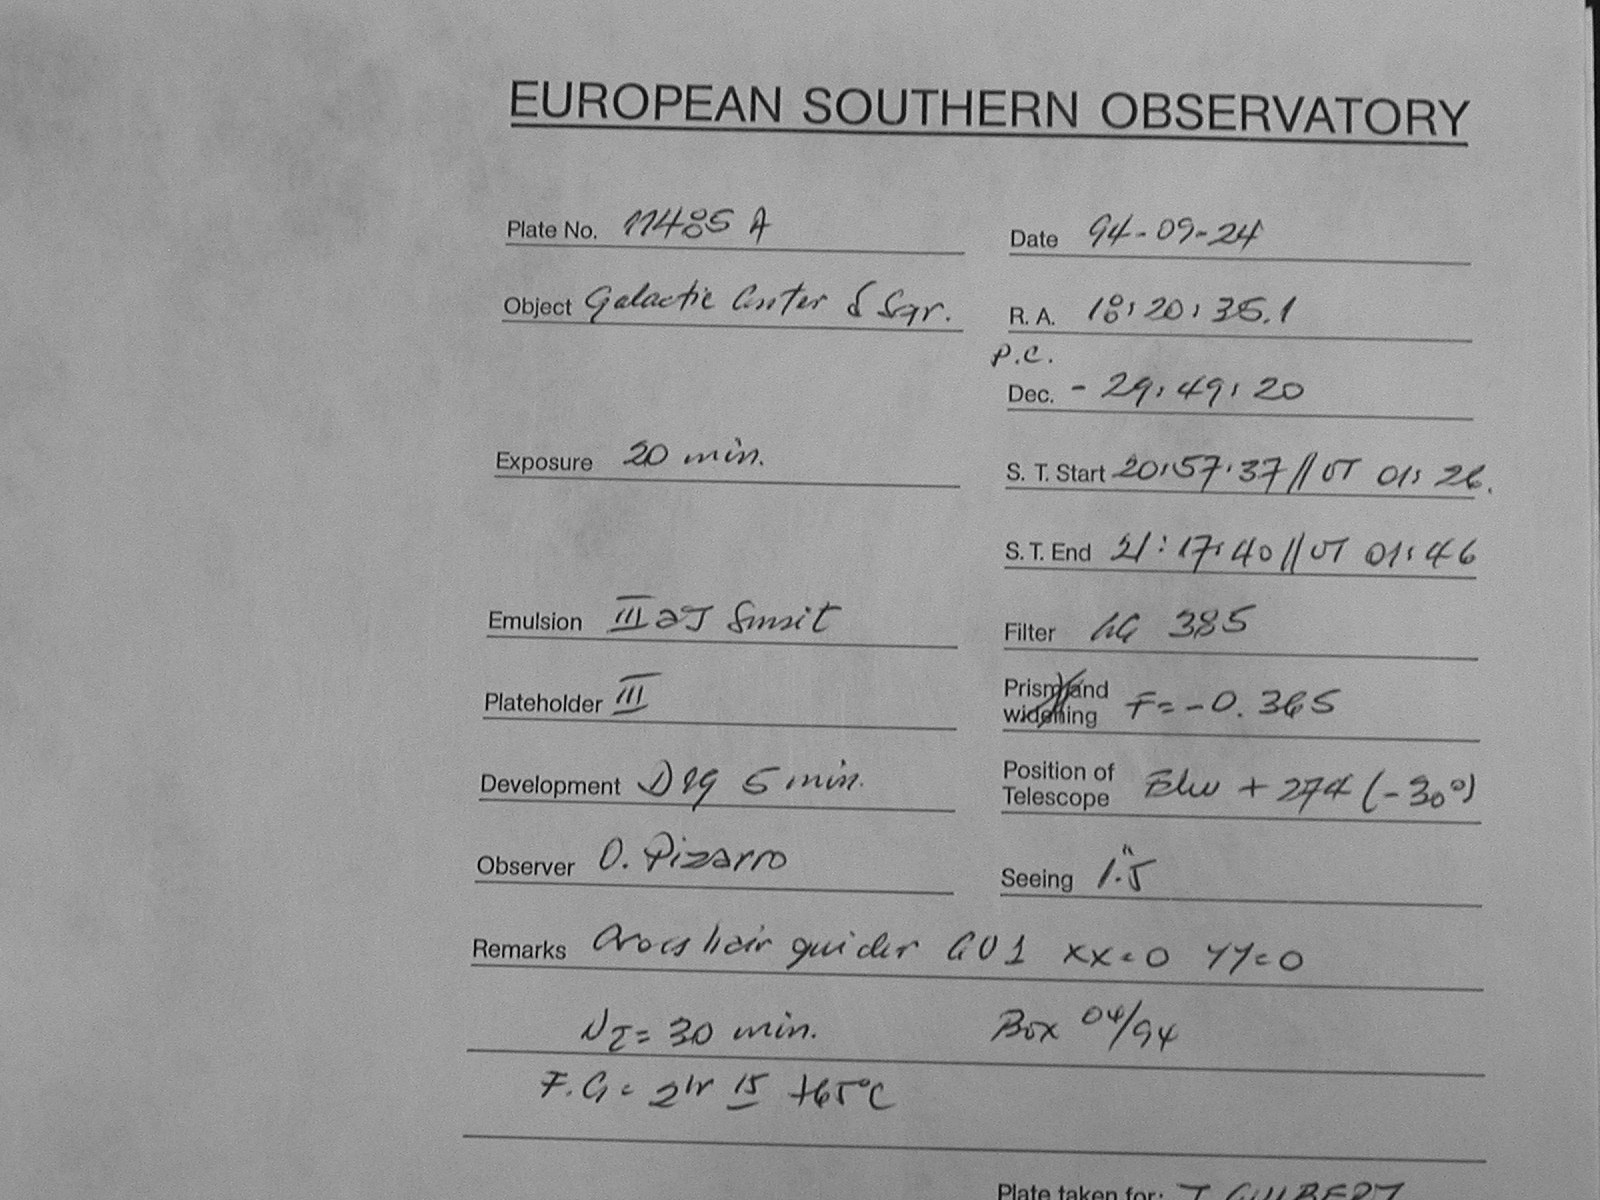 EUROPEAN SOUTHERN OBSERVATORY
Plate No. 11485 A
Date 94-09-24
Object Galactic Center & Sgr.
R. A. 18:20:35.1
P.C.
Dec. - 29:49:20
Exposure 20 min.
S. T. Start 20:57:37 // UT 01:26.
S. T. End 21:17:40 // UT 01:46
Emulsion III aJ
Filter GG 385
Plateholder III
Prism and widening F = -0.365
Development D19 5 min.
Position of Telescope + 274 (-30°)
Observer O. Pizarro
Seeing 1".5
Remarks Cross hair guider GU1 XX=0 YY=0
= 30 min. Box 04/94
F.G = 2hr 15 +65°C
Plate taken for: